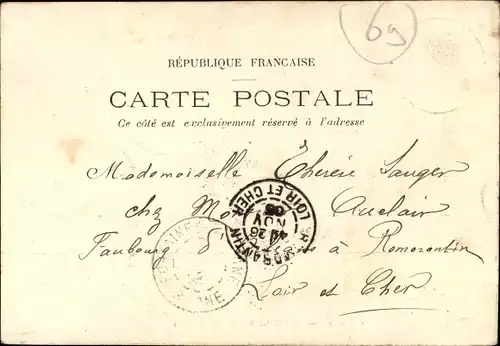 69
RÉPUBLIQUE FRANÇAISE
CARTE POSTALE
Ce côté est exclusivement réservé à l'adresse
Mademoiselle Thérèse Sauger
chez Auclair
Faubourg d' à Romorantin
Loir et Cher
ROMORANTIN
LOIR ET CHER
26
NOV
03